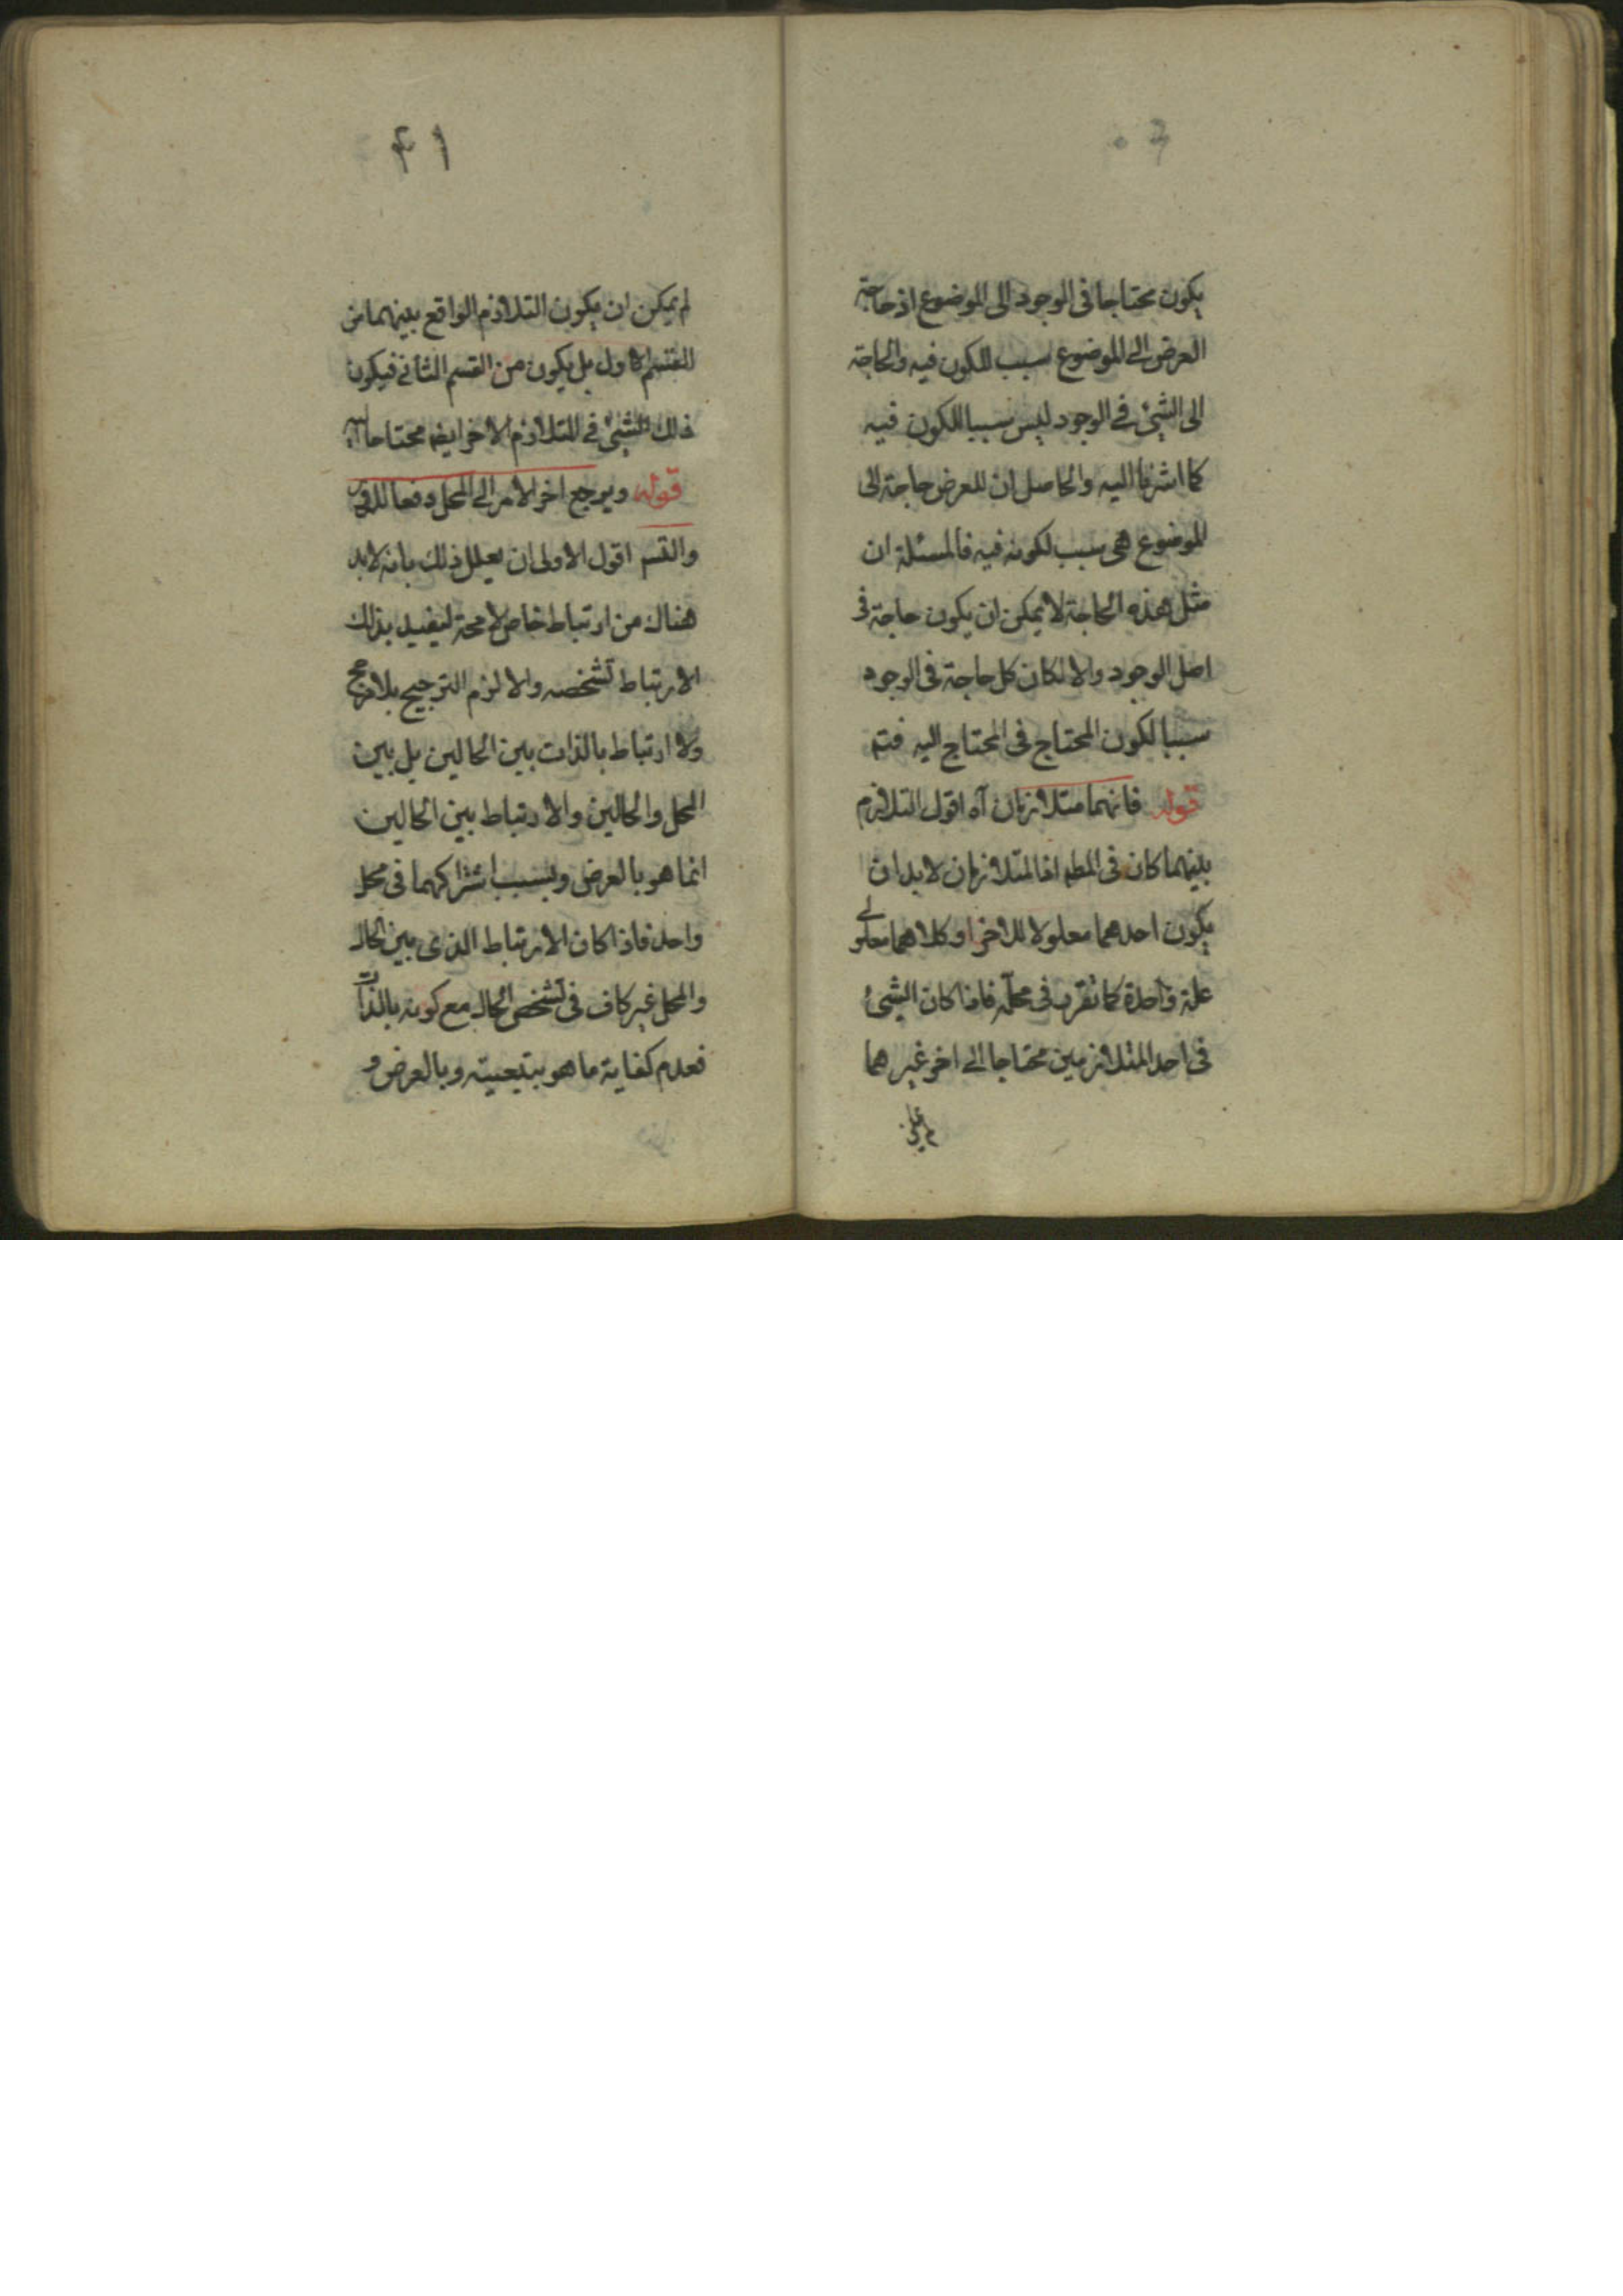 يكون محتاجا فى الوجود الى الموضوع اذ حاجة
العرض الى الموضوع سبب للكون فيه والحاجة
الى الشئ فى الوجود ليس سببا للكون فيه
كما اشرنا اليه والحاصل ان للعرض حاجة الى
الموضوع هى سبب لكونه فيه فالمسئلة ان
مثل هذه الحاجة لا يمكن ان يكون حاجة فى
اصل الوجود والا لكان كل حاجة فى الوجود
سببا لكون المحتاج فى المحتاج اليه فتم
قوله فانهما متلازمان آه اقول التلازم
بينهما كان فى المطم اذ المتلازمان لابد ان
يكون احدهما معلولا للاخر او كلاهما معلولى
علة واحدة كما تقرر فى محله فاذا كان الشئ
فى احد المتلازمين محتاجا الى اخر غيرهما
٤١
لم يمكن ان يكون التلازم الواقع بينهما من
القسم الاول بل يكون من القسم الثانى فيكون
ذلك الشئ فى المتلازم الاخر ايضا محتاجا اليه
قوله ويرجع اخر الامر الى المحل دفعا للدور
والتسم اقول الاولى ان يعلل ذلك بانه لابد
هناك من ارتباط خاص لامحة ليفيد بذلك
الارتباط تشخصه والا لزم الترجيح بلا مرجح
ولا ارتباط بالذات بين الحالين بل بين
المحل والحالين والارتباط بين الحالين
انما هو بالعرض وبسبب اشتراكهما فى محل
واحد فاذا كان الارتباط الذى بين الحال
والمحل غير كاف فى تشخص الحال مع كونه بالذات
فعدم كفاية ما هو بتبعيته وبالعرض و